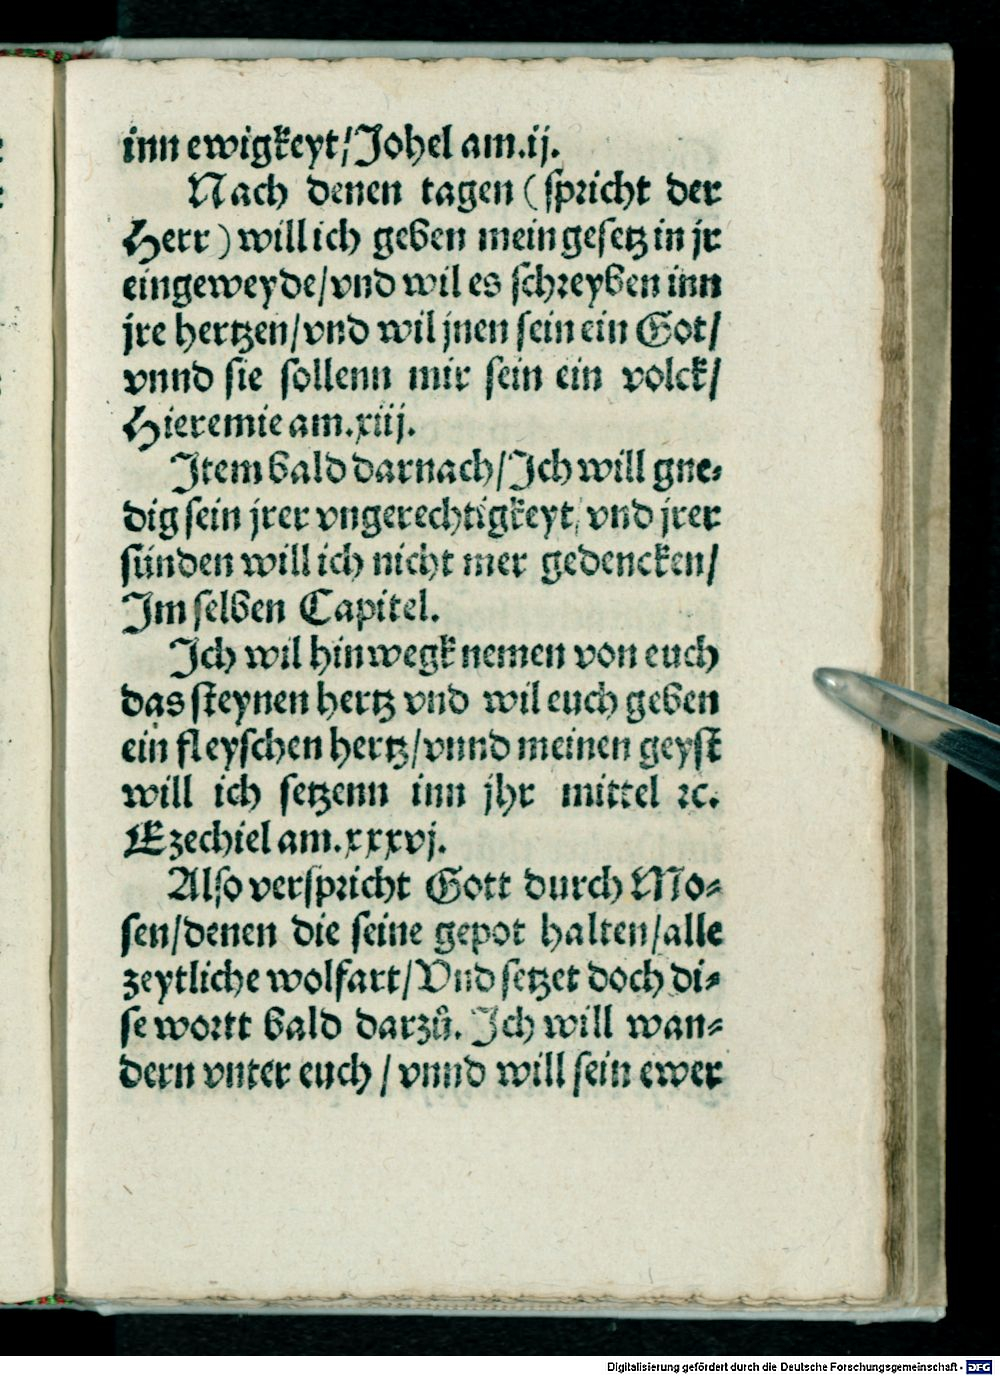 inn ewigkeyt/Johel am.ij.
Nach denen tagen (spricht der
Herr) will ich geben mein gesetz in jr
eingeweyde/vnd wil es schreyben inn
jre hertzen/vnd wil jnen sein ein Got/
vnnd sie sollenn mir sein ein volck/
Hieremie am.xiij.
Item bald darnach/Ich will gne-
dig sein jrer vngerechtigkeyt/ vnd jrer
sünden will ich nicht mer gedencken/
Im selben Capitel.
Ich wil hinwegk nemen von euch
das steynen hertz vnd wil euch geben
ein fleyschen hertz/vnnd meinen geyst
will ich setzenn inn jhr mittel ꝛc.
Ezechiel am.xxxvj.
Also verspricht Gott durch Mo-
sen/denen die seine gepot halten/alle
zeytliche wolfart/Vnd setzet doch di-
se wortt bald darzů. Ich will wan-
dern vnter euch / vnnd will sein ewer
Digitalisierung gefördert durch die Deutsche Forschungsgemeinschaft - DFG